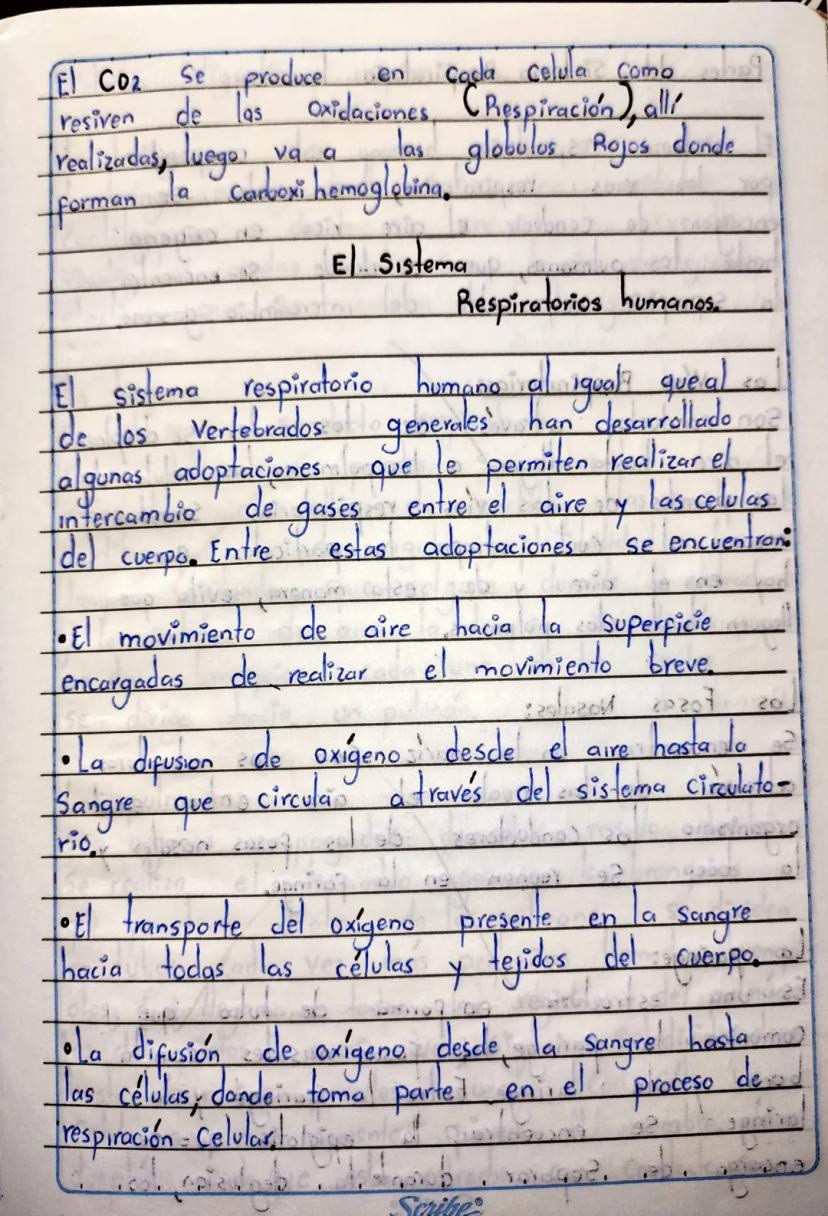 El CO2 se produce en cada celula como
resiven de las oxidaciones (Respiración), allí
realizadas, luego va a las globulos Rojos donde
forman la Carboxi hemoglobina.
El Sistema
Respiratorios humanos.
El sistema respiratorio humano al igual que al
de los vertebrados generales han desarrollado
algunas adoptaciones que le permiten realizar el
intercambio de gases entre el aire y las celulas
del cuerpo. Entre estas adoptaciones se encuentran:
•El movimiento de aire hacia la superficie
encargadas de realizar el movimiento breve.
•La difusion de oxígeno desde el aire hasta la
Sangre que circula a través del sistema circulato-
rio.
•El transporte del oxígeno presente en la sangre
hacia todas las células y tejidos del cuerpo.
•La difusión de oxígeno desde la sangre hasta
las células, donde toma parte en el proceso de
respiración Celular.
Scribe®